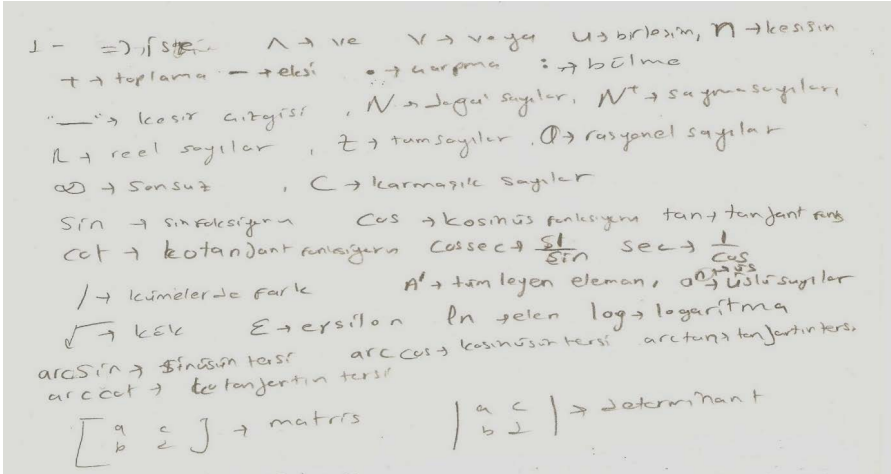 1 - => , ise ∧ → ve ∨ → veya ∪ → birleşim, ∩ → kesişin
+ → toplama − → eksi • → çarpma : → bölme
"—" → kesir çizgisi , N → doğal sayılar, N⁺ → sayma sayıları,
R → reel sayılar , Z → tum sayılar , Q → rasyonel sayılar
∞ → sonsuz , C → karmaşık sayılar
Sin → sin foksiyonu Cos → kosinüs fonksiyonu tan → tanjant fonk
cot → kotanjant fonksiyonu cossec → 1/Sin sec → 1/Cos
/ → kümelerde fark A' → tümleyen eleman, aⁿ → üs → üslü sayılar
√ → kök Ɛ → epsilon ln → elen log → logaritma
arcsin → sinüsün tersi arc cos → kosinüsün tersi arctan → tanjantın ters.
arc cot → kotanjantın tersi
[a c b d] → matris |a c b d| → determinant